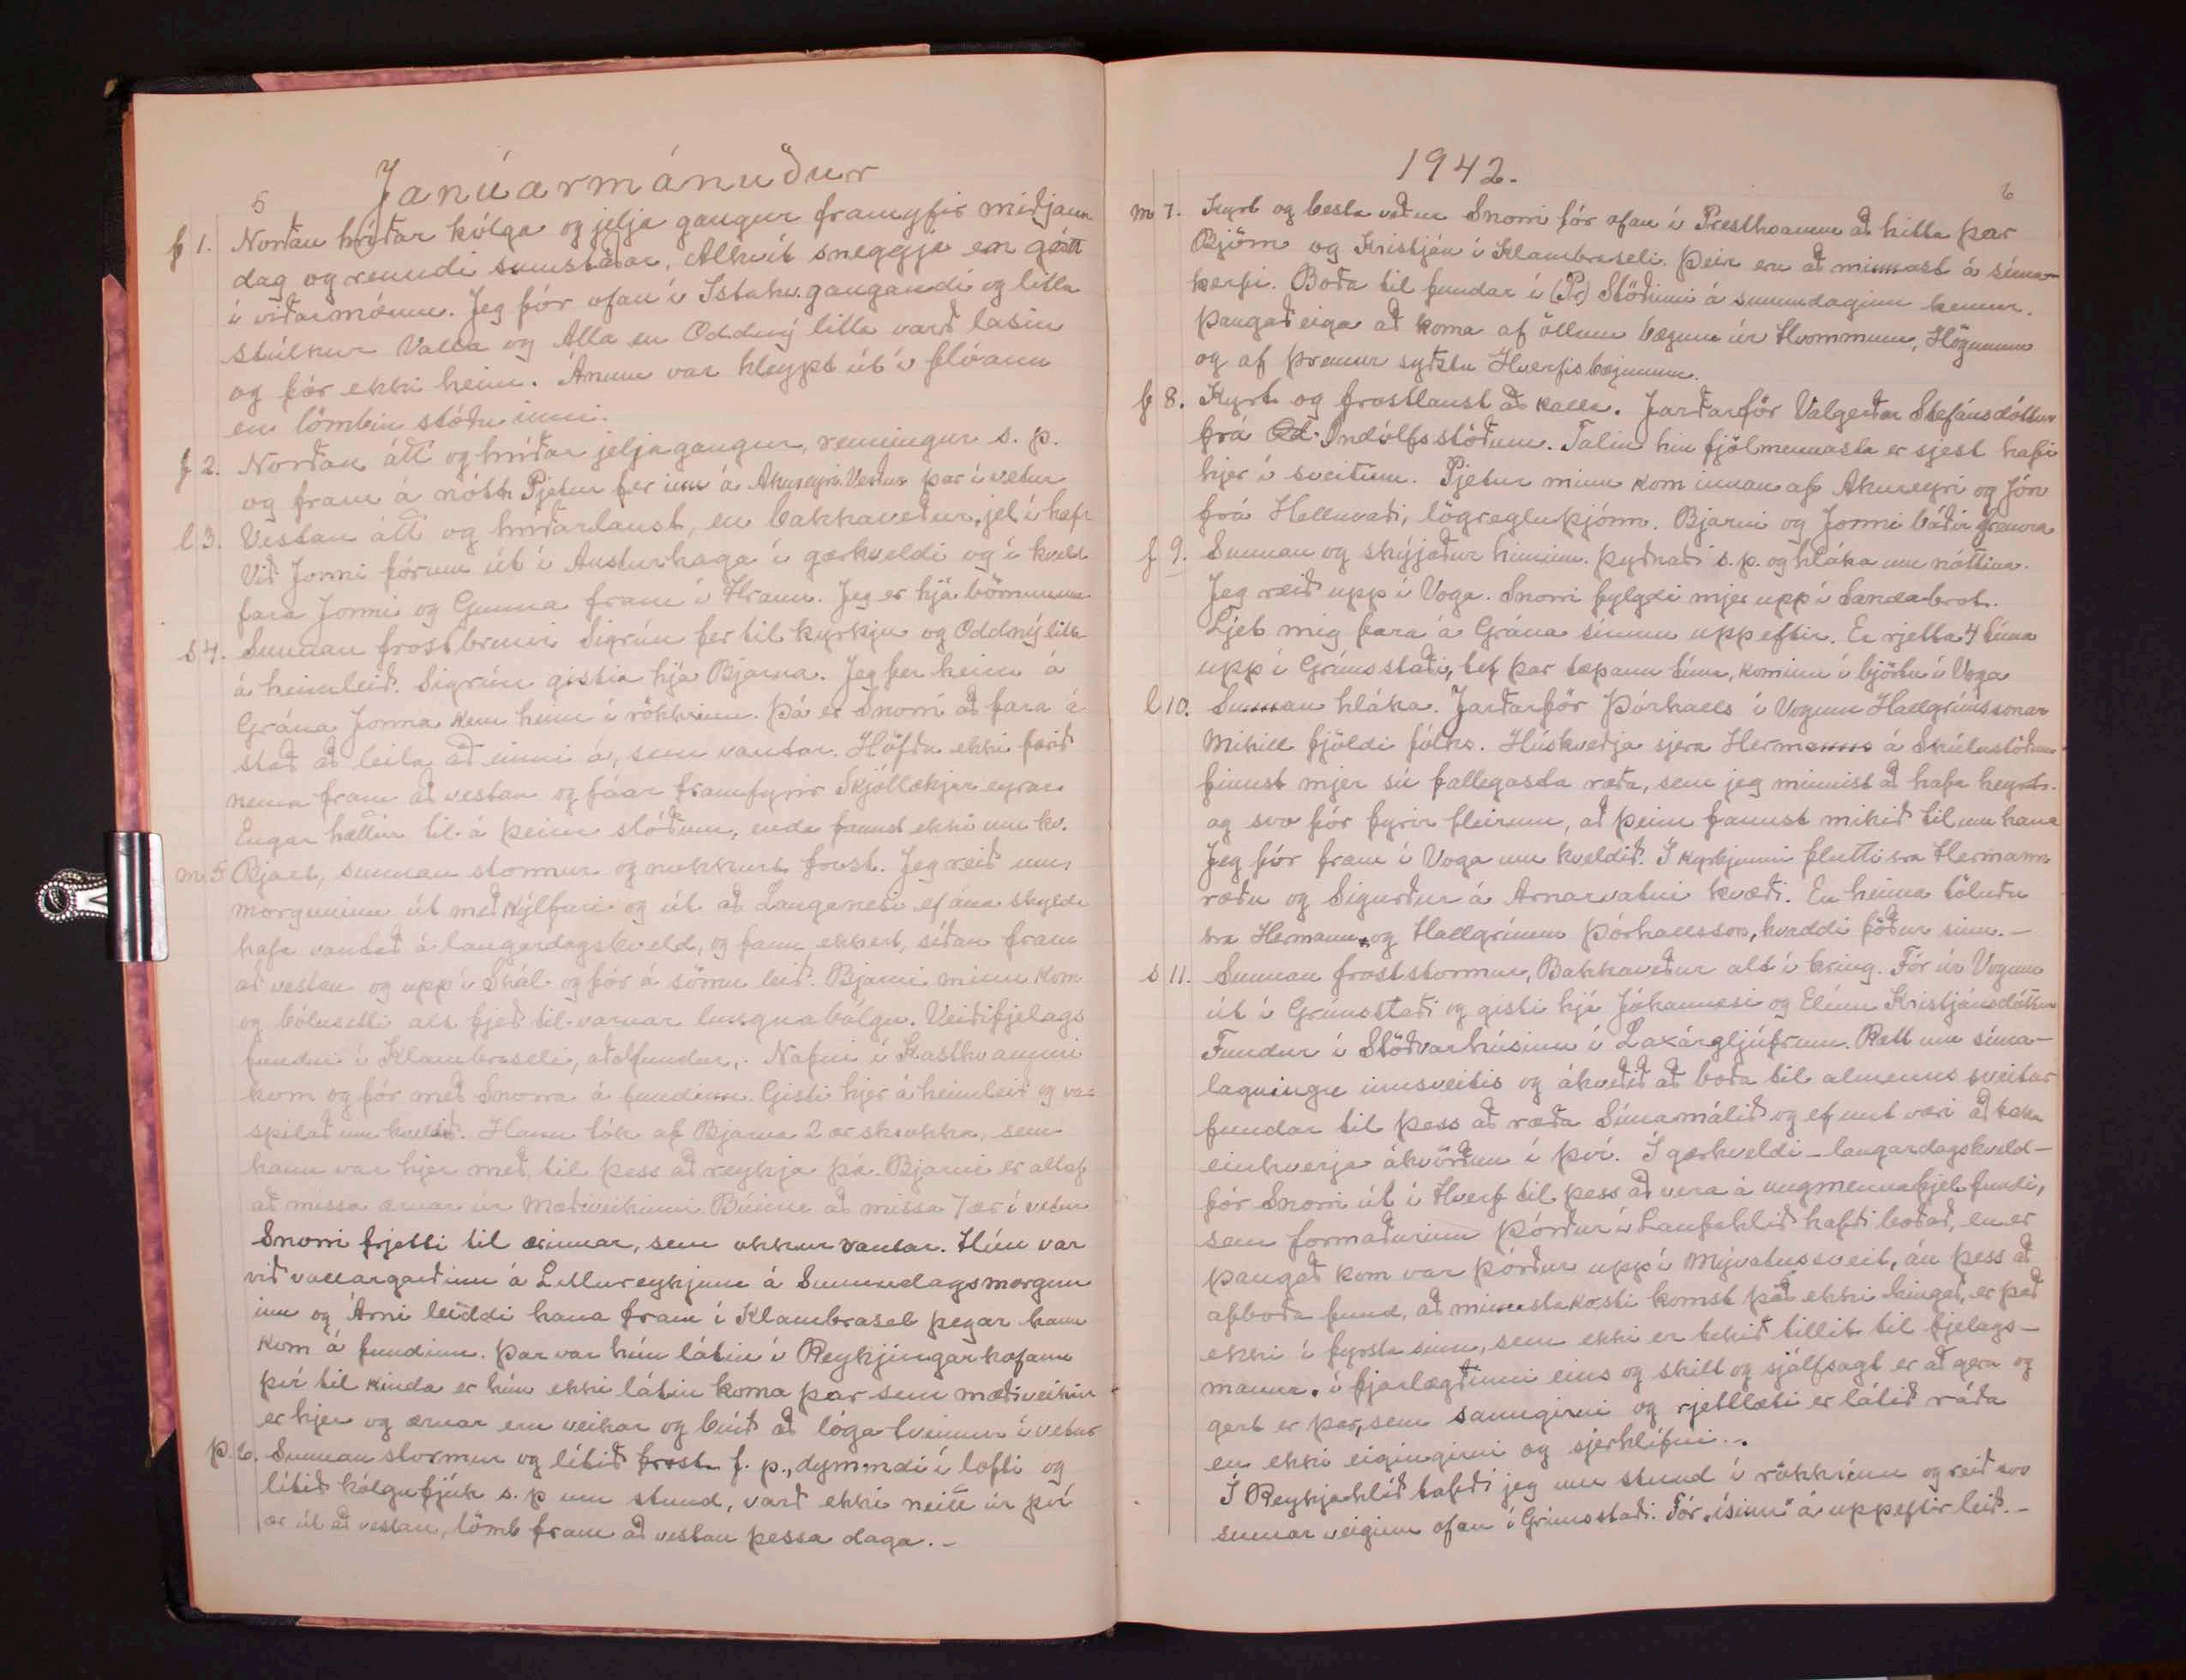 Janúarmánuður
5
f 1. Norðan hríðar kólga og jelja gangur framyfir miðjann
dag og renndi sumstaðar. Alhvít sneggja en gott
í viðarmóunum. Jeg fór ofan í Ístahv. gangandi og litla
stúlkur Valla og Alla en Oddný litla varð lasin
og fór ekki heim. Ánum var hleypt út í flóann
en lömbin stóðu inni.
f 2. Norðan átt og hríðar jeljagangur, renningur s. p.
og fram á nótt. Pjetur fer inn á Akureyri. Verður þar í vetur
l 3. Vestan átt og hríðarlaust, en bakkaveður, jel í hafi
Við Jonni fórum út í Austurhaga í gærkveldi og í kveld
fara Jonni og Gunna fram í Hraun. Jeg er hjá börnunum
s 4. Sunnan frostbruni Sigrún fer til kyrkju og Oddný litla
á heimleið. Sigrún gistir hjá Bjarna. Jeg fer heim á
Grána Jonna kem heim í rökkrinu. Þá er Snorri að fara á
stað að leita að einni á, sem vantar. Höfðu ekki farið
nema fram að vestan og fáar framfyrir Skjóllækjar eyrar
Engar hættur til á þeim slóðum, enda fannst ekki um kv.
m. 5. Bjart, sunnan stormur og nokkurt frost. Jeg reið um
morguninn út með Kýlfari og út að Langanesi ef ána skyldi
hafa vantað á laugardagskveld, og fann ekkert, síðan fram
að vestan og upp í Skál og fór á sömu leið. Bjarni minn kom
og bólusetti alt fjeð til varnar lungnabólgu. Veiðifjelags
fundur í Klambraseli, aðalfundur. Nafni í Kasthvammi
kom og fór með Snorra á fundinn. Gisti hjer á heimleið og var
spilað um kveldið. Hann tók af Bjarna 2 ærskrokka, sem
hann var hjer með, til þess að reykja þá. Bjarni er altaf
að missa ærnar úr mæðiveikinni. Búinn að missa 7 ær í vetur
Snorri frjetti til ærinnar, sem okkur vantar. Hún var
við vallargarðinn á Litlureykjum á Sunnudagsmorgun
inn og Árni leiddi hana fram í Klambrasel þegar hann
kom á fundinn. Þar var hún látin í Reykjingarkofann
því til kinda er hún ekki látin koma þar sem mæðiveikin
er hjer og ærnar eru veikar og búið að lóga tveimur í vetur
þ. 6. Sunnan stormur og lítið frost f. p., dymmdi í lofti og
lítið kólgufjúk s. p um stund, varð ekki neitt úr því
ær út að vestan, lömb fram að vestan þessa daga. -
1942.
6
m 7. Kyrt og besta veður Snorri fór ofan í Presthvamm að hitta þar
Björn og Kristján í Klambraseli. Þeir eru að minnast á síma-
kerfi. Boða til fundar í (Pr) Stöðinni á sunnudaginn kemur.
Þangað eiga að koma af öllum bæjum úr Hvommum, Högunum
og af þremur syðstu Hverfisbæjunum.
f 8. Kyrt og frostlaust að kalla. Jarðarför Valgerðar Stefánsdóttur
frá Indólfsstöðum. Talin hin fjölmennasta er sjest hafi
hjer í sveitum. Pjetur minn kom innan af Akureyri og Jón
frá Helluvaði, lögregluþjónn. Bjarni og Jonni báðir
f 9. Sunnan og skýjaður himinn. Þyðnaði s. p. og hláka um nóttina.
Jeg reið upp í Voga. Snorri fylgdi mjer upp í Sandabrot.
Ljet mig fara á Grána sínum uppeftir. Er rjetta 4 tíma
upp í Grímsstaði, tef þar tæpann tíma, kominn í björtu í Voga
l 10. Sunnan hláka. Jarðarför Þórhalls í Vogum Hallgrímssonar
Mikill fjöldi fólks. Húskveðja sjera Hermanns á Skútustöðum
finnst mjer sú fallegasta ræða, sem jeg minnist að hafa heyrt.
og svo fór fyrir fleirum, að þeim fannst mikið til um hana
Jeg fór fram í Voga um kveldið. Í kyrkjunni flutti sra Hermann
ræðu og Sigurður á Arnarvatni kvæði. En heima töluðu
sra Hermann og Hallgrímur Þórhallsson, kvaddi föður sinn. -
s 11. Sunnan froststormur, Bakkaveður alt í kring. Fór úr Vogum
út í Grímsstaði og gisti hjá Jóhannesi og Elínu Kristjánsdóttur
Fundur í Stöðvarhúsinu í Laxárgljúfrum. Rætt um síma-
lagningu innsveitis og ákveðið að boða til almenns sveitar
fundar til þess að ræða Símamálið og ef unt væri að taka
einhverja ákvörðun í því. Í gærkveldi - laugardagskveld -
fór Snorri út í Hverf til þess að vera á ungmennafjel. fundi,
sem formaðurinn Þórður í Laufahlíð hafði boðað, en er
þangað kom var Þórður upp í Mývatnssveit, án þess að
afboða fund, að minnsta kosti komst það ekki hingað, er það
ekki í fyrsta sinn, sem ekki er tekið tillit til fjelags-
manna í fjarlægðinni eins og skilt og sjálfsagt er að gera og
gert er þar, sem sanngirni og rjettlæti er látið ráða
en ekki eigingirni og sjerhlífni. -
Í Reykjahlíð tafði jeg um stund í rökkrinu og reið svo
sunnar veginn ofan í Grímsstaði. Fór „ísinn" á uppeftir leið. -